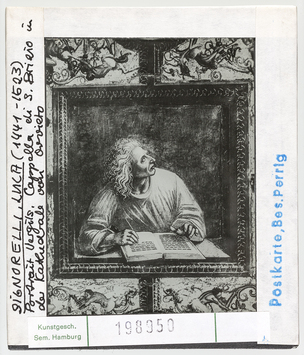 SIGNORELLI, LUCA (1441-1523)
Portrait Vergils. Cappella di S. Brizio in
der Kathedrale von Orvieto
Postkarte, Bes. Perrig
Kunstgesch.
Sem. Hamburg
198050